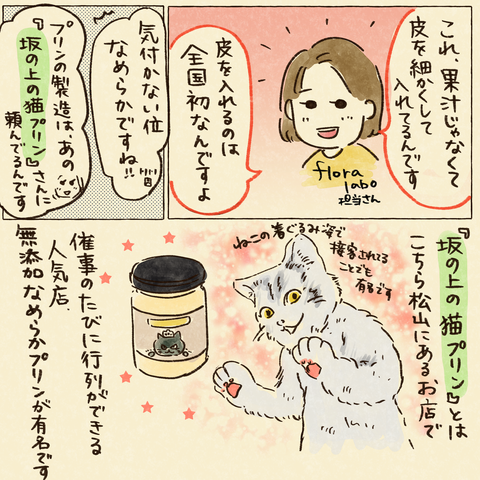 これ、果汁じゃなくて
皮を細かくして
入れてるんです
皮を入れるのは
全国初なんですよ
flora
labo
担当さん
気付かない位
なめらかですね!!
プリンの製造は、あの
『坂の上の猫プリン』さんに
頼んでるんです
『坂の上の猫プリン』とは
こちら松山にあるお店で
ねこの着ぐるみ姿で
接客されてる
ことでも
有名です
催事のたびに行列ができる
人気店。
無添加なめらかプリンが有名です